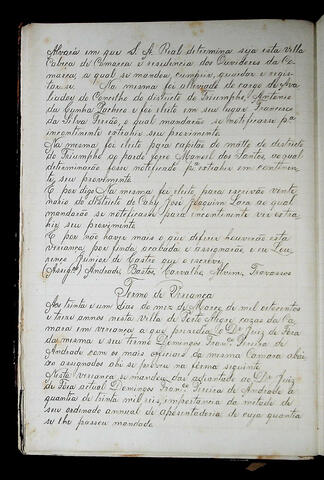 Alvará em que S. A. Real determina seja esta villa
Cabeça de Comarca e residencia dos Ouvidores da Co
marca, a qual se mandou cumprir, guardar e regis-
tar-se. Na mesma foi alliviado do cargo de Ava
liador do Concelho do districto de Triumpho, Antonio
da Cunha Pacheco e foi eleito em seu lugar Francisco
da Silva, o qual mandarão se notificasse pª
incontinente extrahir seu provimento.
Na mesma foi eleito para capitão do matto do districto
do Triumpho o pardo forro Manoel dos Santos, ao qual
determinarão fosse notificado pª extrahir em continen-
te, seu provimento.
E por digo Na mesma foi eleito, para escrivão vente
nario do districto de Cahy José Joaquim Lara ao qual
mandarão se notificasse para incontinente vir extra
hir seu provimento
E por não haver mais o que deferir houverão esta
vereança por finda, acabada e assignarão, e eu Lou-
renço Junior de Castro que o escrevi,
(Assigº) Andrade, Bastos, Carvalho, Alvim, Travassos
Termo de Vereança
Aos trinta e um dias do mez de Março de mil oitocentos
e treze annos nesta villa de Porto Alegre cazas da Ca
mara em vereança a que presidio o Dr Juiz de Fora
da mesma e seu termo Domingos Franco Pereira de
Andrade com os mais officiaes da mesma Camara abai
xo assignados ahi se proveu na forma seguinte
Nesta vereança se mandou dar adiantado ao Dr Juiz
de Fora actual Domingos Franco Pereira de Andrade a
quantia de trinta mil reis, importancia da metade de
seu ordinado annual de aposentadoria de cuja quantia
se lhe passou mandado